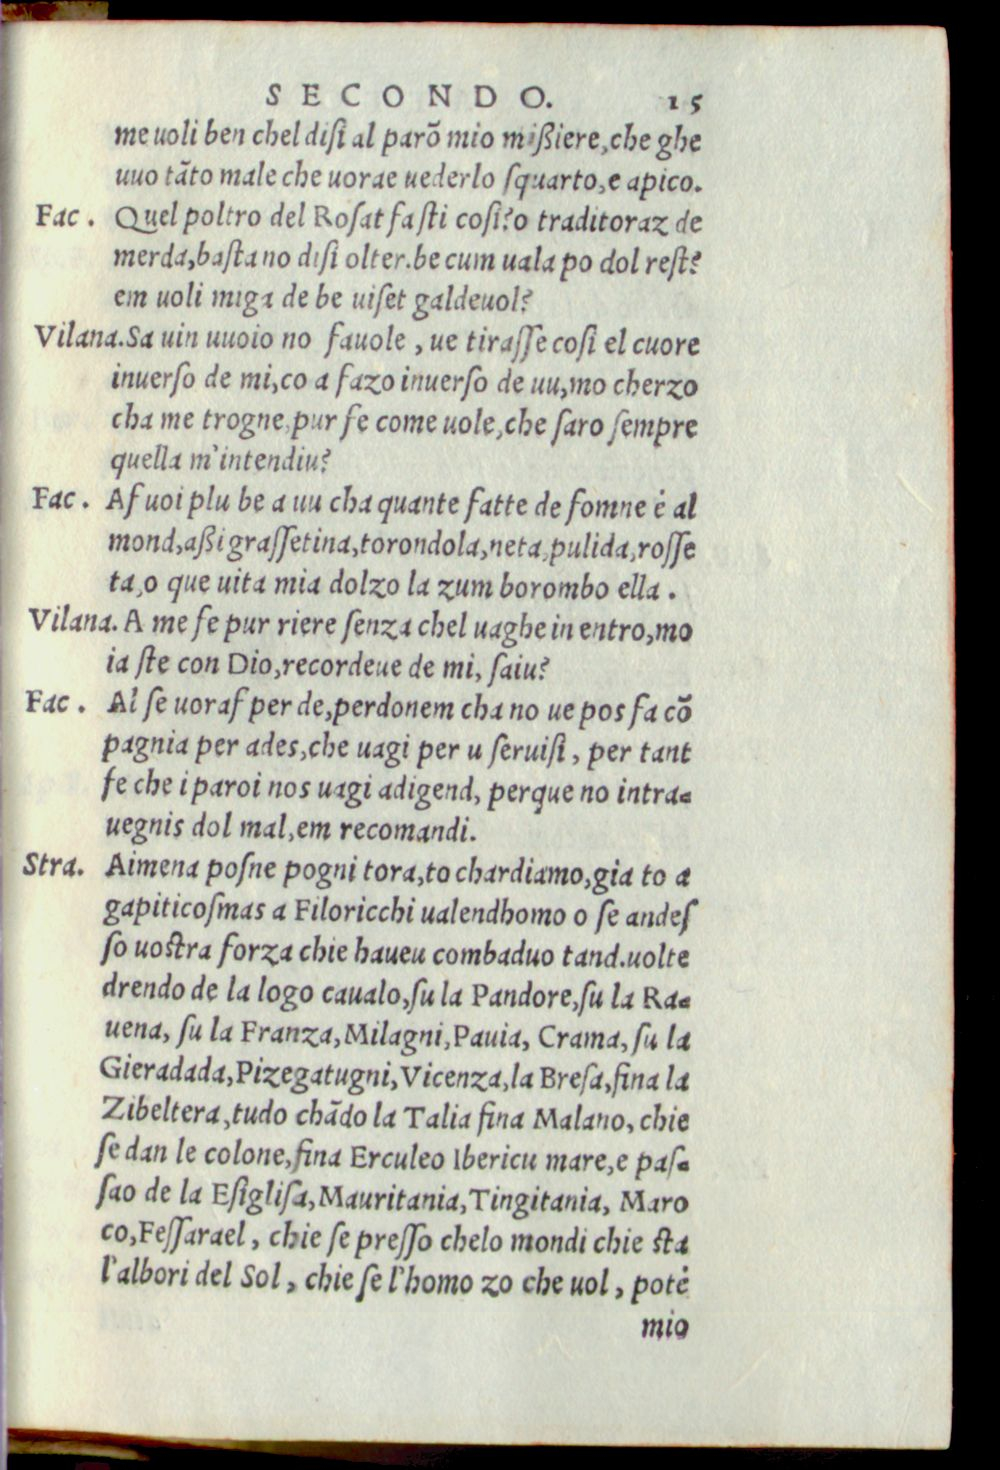 SECONDO. 15
me uoli ben chel disi al parõ mio mißiere, che ghe
uuo tãto male che uorae uederlo ſquarto, e apico.
Fac. Quel poltro del Roſat faſti coſi? o traditoraz de
merda, baſta no diſi olter. be cum uala po dol reſt?
em uoli miga de be uiſet galdeuol?
Vilana. Sa uin uuoio no fauole, ue tiraſſe coſi el cuore
inuerſo de mi, co a fazo inuerſo de uu, mo cherzo
cha me trogne, pur ſe come uole, che ſaro ſempre
quella m'intendiu?
Fac. Af uoi plu be a uu cha quante fatte de fomne è al
mond, aßi graſſetina, torondola, neta, pulida, roſſe
ta, o que uita mia dolzo la zum borombo ella.
Vilana. A me fe pur riere ſenza chel uaghe in entro, mo
ia ſte con Dio, recordeue de mi, ſaiu?
Fac. Al ſe uoraf per de, perdonem cha no ue pos fa cõ
pagnia per ades, che uagi per u ſeruiſi, per tant
fe che i paroi nos uagi adigend, perque no intra-
uegnis dol mal, em recomandi.
Stra. Aimena poſne pogni tora, to chardiamo, gia to a
gapiticoſmas a Filoricchi ualendhomo o ſe andeſ
ſo uoſtra forza chie haueu combaduo tand. uolte
drendo de la logo caualo, ſu la Pandore, ſu la Ra-
uena, ſu la Franza, Milagni, Pauia, Crama, ſu la
Gieradada, Pizegatugni, Vicenza, la Breſa, fina la
Zibeltera, tudo chãdo la Talia fina Malano, chie
ſe dan le colone, fina Erculeo Ibericu mare, e paſ-
ſao de la Eſigliſa, Mauritania, Tingitania, Maro
co, Feſſarael, chie ſe preſſo chelo mondi chie ſta
l'albori del Sol, chie ſe l'homo zo che uol, potè
mio